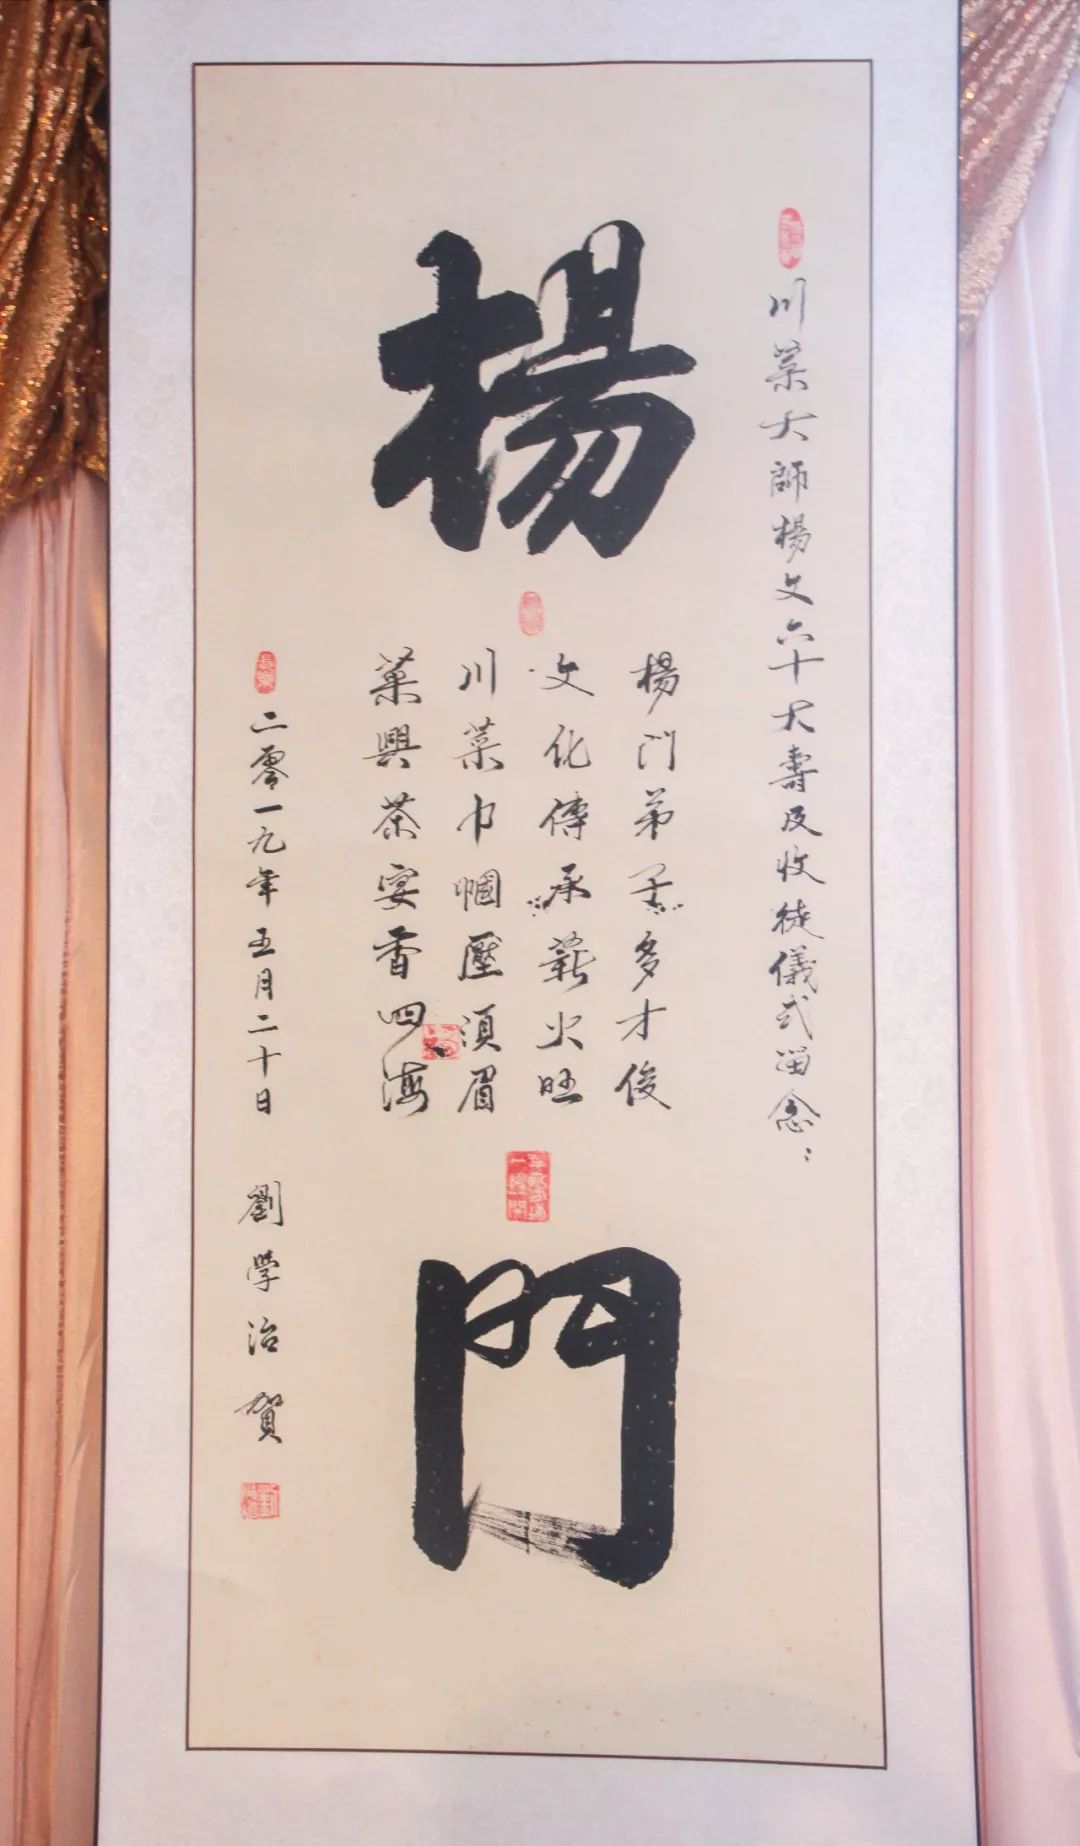 川菜大師楊文六十大壽及收徒儀式留念：
楊門
楊門弟子多才俊
文化傳承薪火旺
川菜巾幗壓須眉
菓興茶宴香四海
二零一九年五月二十日 劉学治賀